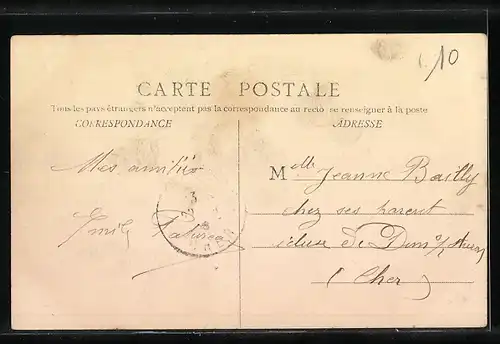 10
CARTE POSTALE
Tous les pays étrangers n'acceptent pas la correspondance au recto (se renseigner à la poste
CORRESPONDANCE
ADRESSE
Mes amitiés
Emile
Mlle Jeanne Bailly
chez ses parent
écluse de Dun s/ Auron
(Cher)